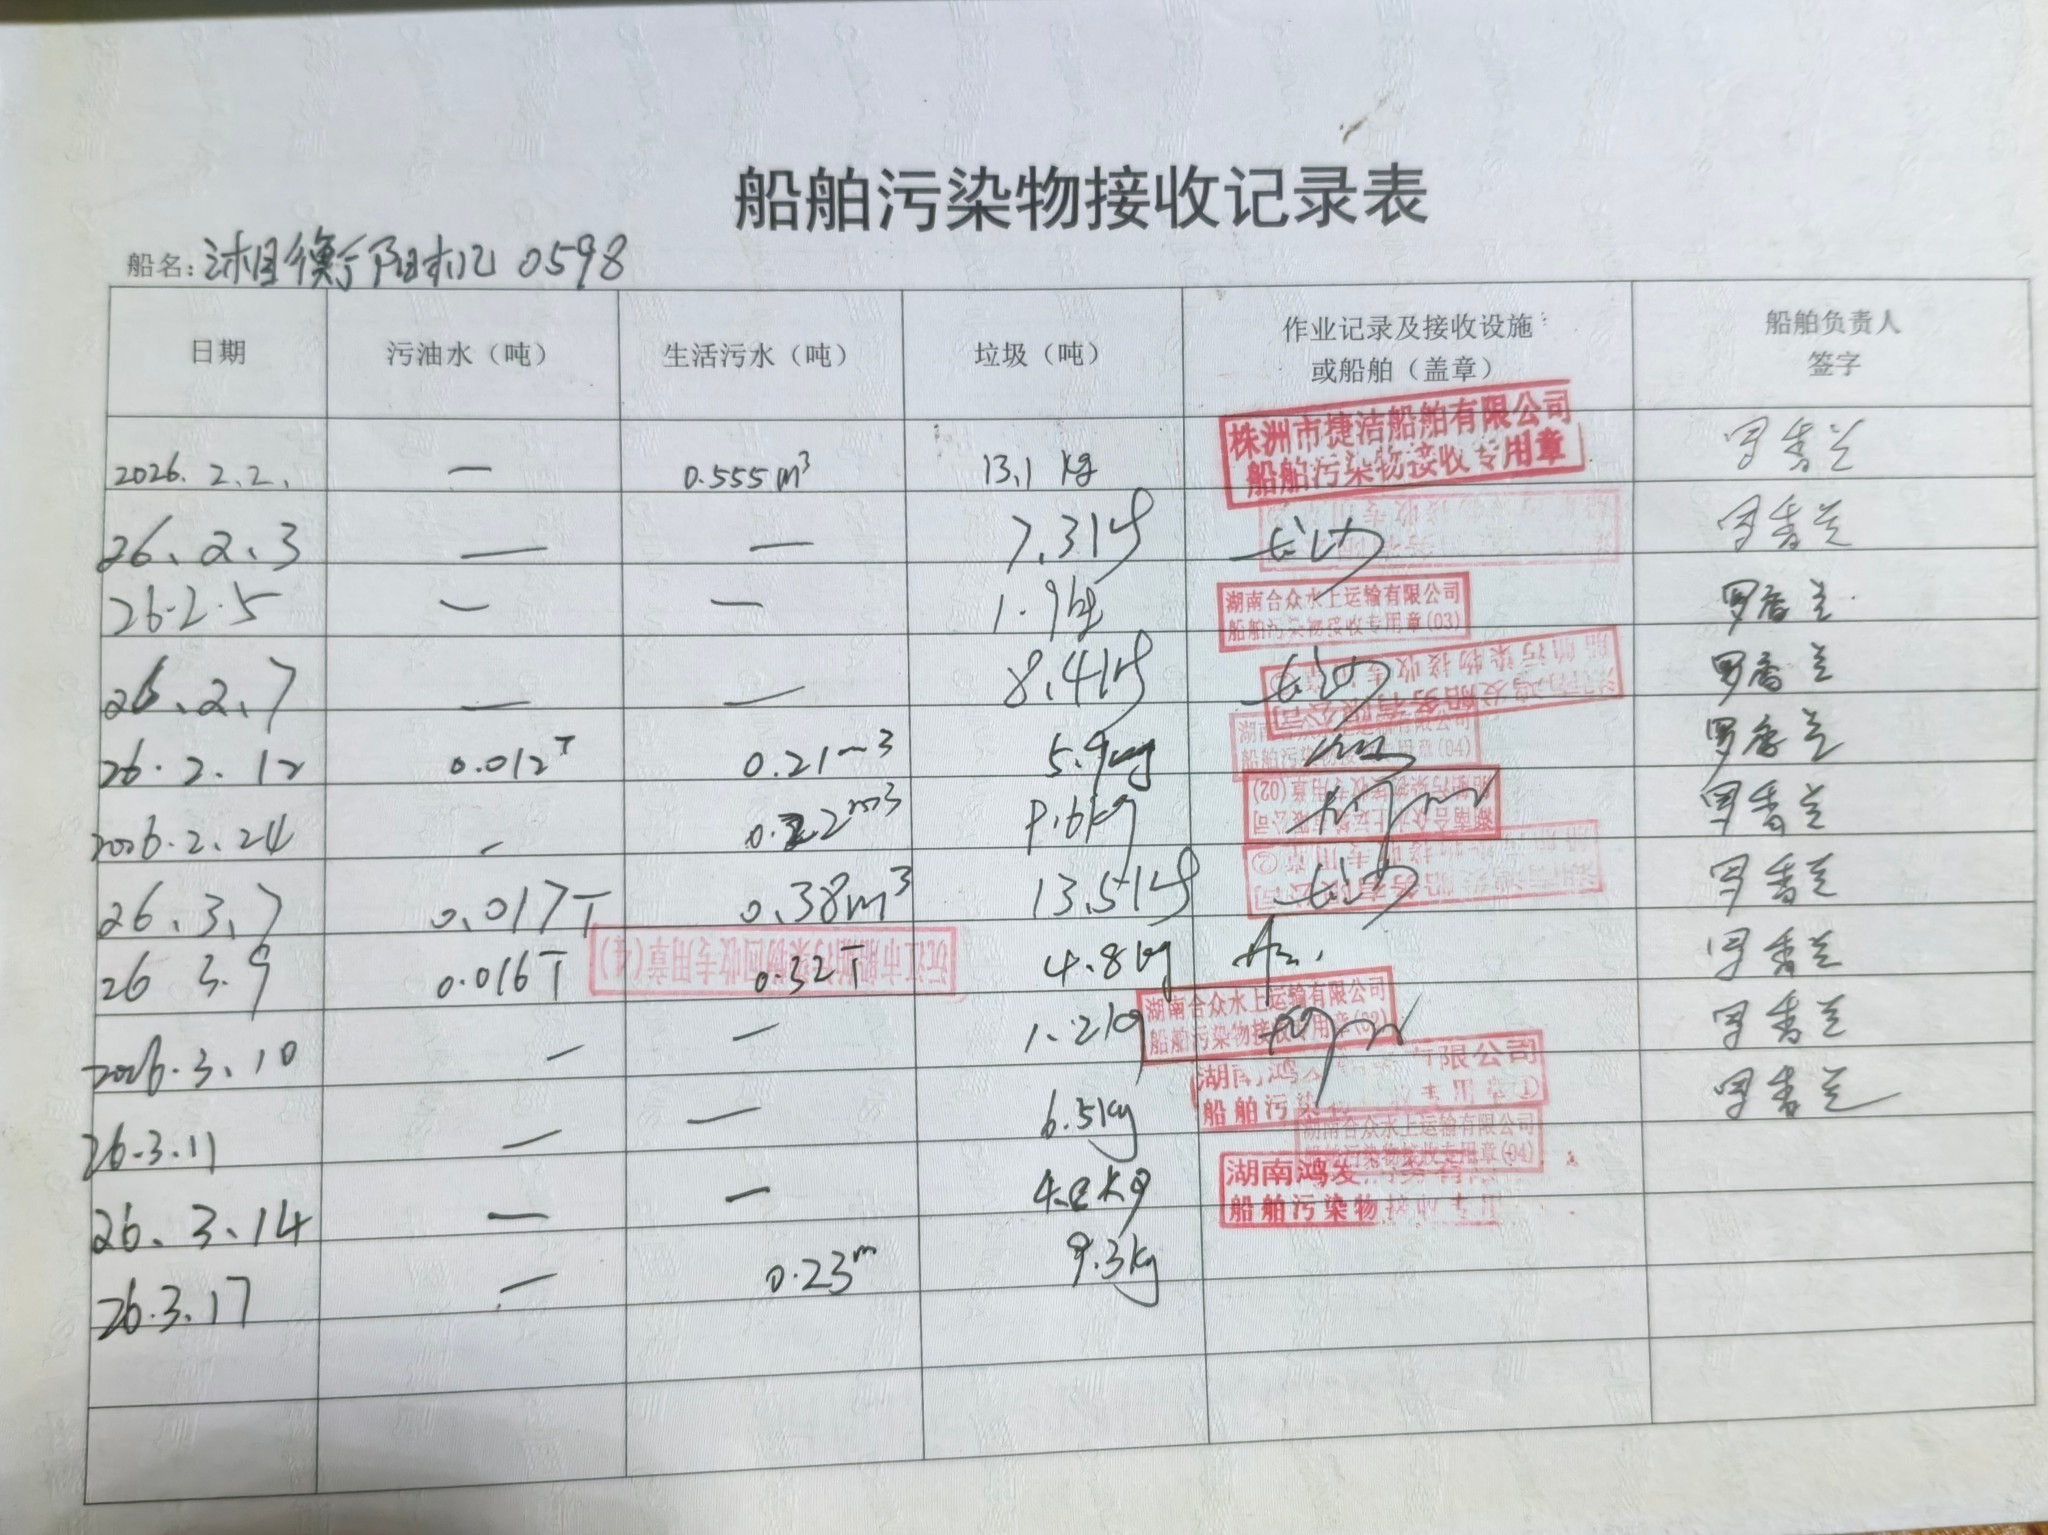 船舶污染物接收记录表
船名：湘衡阳机 0598
日期 污油水（吨） 生活污水（吨） 垃圾（吨） 作业记录及接收设施或船舶（盖章） 船舶负责人签字
2026.2.2. — 0.555m³ 13.1 kg 株洲市捷洁船舶有限公司 船舶污染物接收专用章 罗香兰
26.2.3 — — 7.3kg 罗香兰
26.2.5 — — 1.9kg 湖南合众水上运输有限公司 船舶污染物接收专用章(03) 罗香兰
26.2.7 — — 8.4kg 罗香兰
26.2.12 0.012T 0.21m³ 5.9kg 湖南合众水上运输有限公司 船舶污染物接收专用章(04) 罗香兰
2026.2.24 - m³ .6kg 湖南合众水上运输有限公司 船舶污染物接收专用章(02) 罗香兰
26.3.7 0.017T 0.38m³ 13.5kg 罗香兰
26 3.9 0.016T 0.32T 4.8kg 沅江市船舶污染物回收专用章(4) 罗香兰
2026.3.10 — — 1.2kg 湖南合众水上运输有限公司 船舶污染物接收专用章(02) 罗香兰
26.3.11 — — 6.5kg 罗香兰
湖南合众水上运输有限公司 船舶污染物接收专用章(04)
26.3.14 — — kg 湖南鸿发 船舶污染物接收专用
26.3.17 — 0.23m 9.3kg